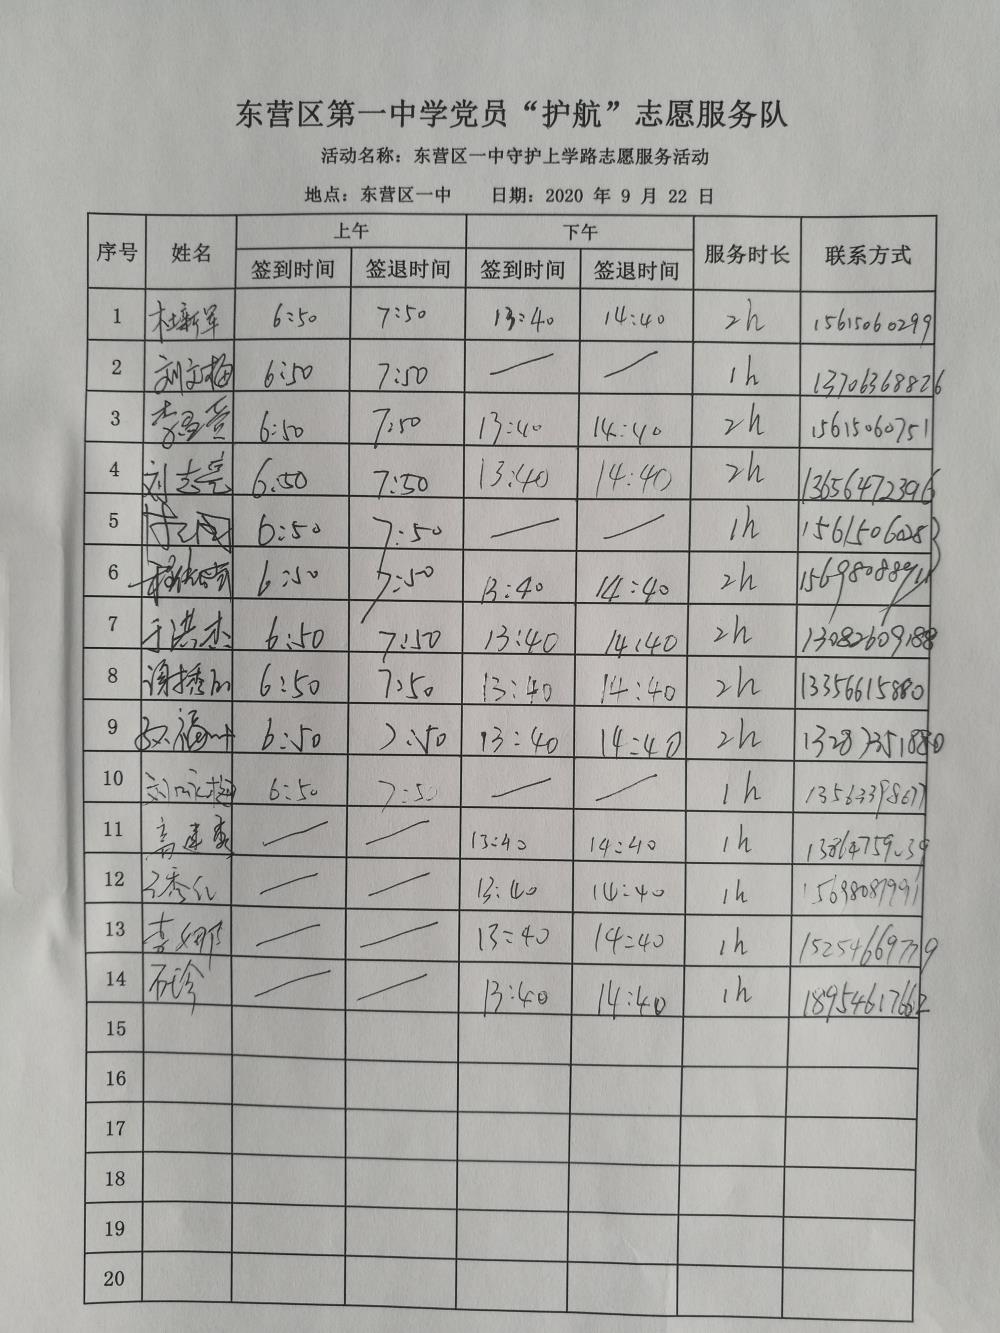 东营区第一中学党员“护航”志愿服务队
活动名称：东营区一中守护上学路志愿服务活动
地点：东营区一中 日期：2020 年 9 月 22 日
序号 姓名 上午 下午 服务时长 联系方式
签到时间 签退时间 签到时间 签退时间
1 杜新军 6:50 7:50 13:40 14:40 2h 15615060299
2 刘文梅 6:50 7:50 — — 1h 13706368826
3 6:50 7:50 13:40 14:40 2h 15615060751
4 刘志亮 6:50 7:50 13:40 14:40 2h 13656472396
5 6:50 7:50 — — 1h 15615060283
6 6:50 7:50 13:40 14:40 2h
7 于洪杰 6:50 7:50 13:40 14:40 2h 13082609188
8 6:50 7:50 13:40 14:40 2h 13356615880
9 6:50 7:50 13:40 14:40 2h 13287351880
10 6:50 7:50 — — 1h 13563398677
11 — — 13:40 14:40 1h
12 — — 13:40 14:40 1h 15698087991
13 李娜 — — 13:40 14:40 1h 15254669779
14 石珍 — — 13:40 14:40 1h 18954617662
15
16
17
18
19
20